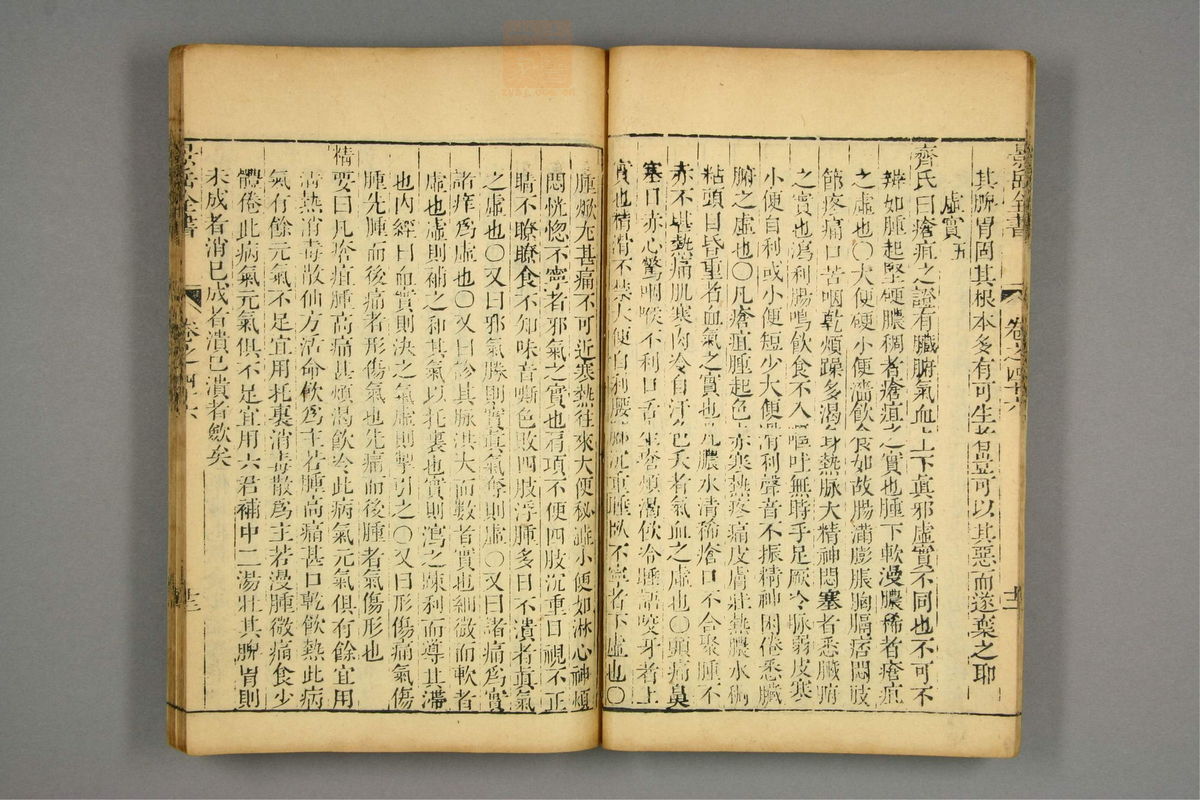 景岳全書
卷之四十六
其脾胃固其根本多有可生者豈可以其惡而遂棄之耶
虛實五
齊氏曰瘡疽之證有臟腑氣血上下真邪虛實不同也不可不
辨如腫起堅硬膿稠者瘡疽之實也腫下軟漫膿稀者瘡疽
之虛也○大便硬小便濇飲食如故腸滿膨脹胸膈痞悶肢
節疼痛口苦咽乾煩躁多渴身熱脉大精神悶塞者悉臟腑
之實也瀉利腸鳴飲食不入嘔吐無時手足厥冷脉弱皮寒
小便自利或小便短少大便滑利聲音不振精神困倦悉臟
腑之虛也○凡瘡疽腫起色赤寒熱疼痛皮膚壯熱膿水稠
粘頭目昏重者血氣之實也凡膿水清稀瘡口不合聚腫不
赤不甚熱痛肌寒肉冷自汗色夭者氣血之虛也○頭痛鼻
塞目赤心驚咽喉不利口舌生瘡煩渴飲冷睡語咬牙者上
實也精滑不禁大便自利腰脚沉重睡臥不寧者下虛也○
腫焮尤甚痛不可近寒熱往來大便秘澁小便如淋心神煩
悶恍惚不寧者邪氣之實也肩項不便四肢沉重目視不正
睛不瞭瞭食不知味音嘶色敗四肢浮腫多日不潰者真氣
之虛也○又曰邪氣勝則實真氣奪則虛○又曰諸痛為實
諸痒為虛也○又曰診其脉洪大而數者實也細微而軟者
虛也虛則補之和其氣以托裏也實則瀉之疎利而導其滯
也內經曰血實則決之氣虛則掣引之○又曰形傷痛氣傷
腫先腫而後痛者形傷氣也先痛而後腫者氣傷形也
精要曰凡瘡疽腫高痛甚煩渴飲冷此病氣元氣俱有餘宜用
清熱消毒散仙方活命飲為主若腫高痛甚口乾飲熱此病
氣有餘元氣不足宜用托裏消毒散為主若漫腫微痛食少
體倦此病氣元氣俱不足宜用六君補中二湯壯其脾胃則
未成者消已成者潰已潰者歛矣
景岳全書
卷之四十六